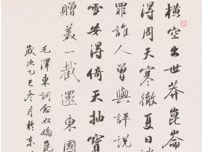 橫空出世莽崑崙
得周天寒徹夏日
罪誰人曾與評說
雪安得倚天抽寶
贈美一截還東國
毛澤東詞念奴嬌崑
歲次乙巳冬月於京